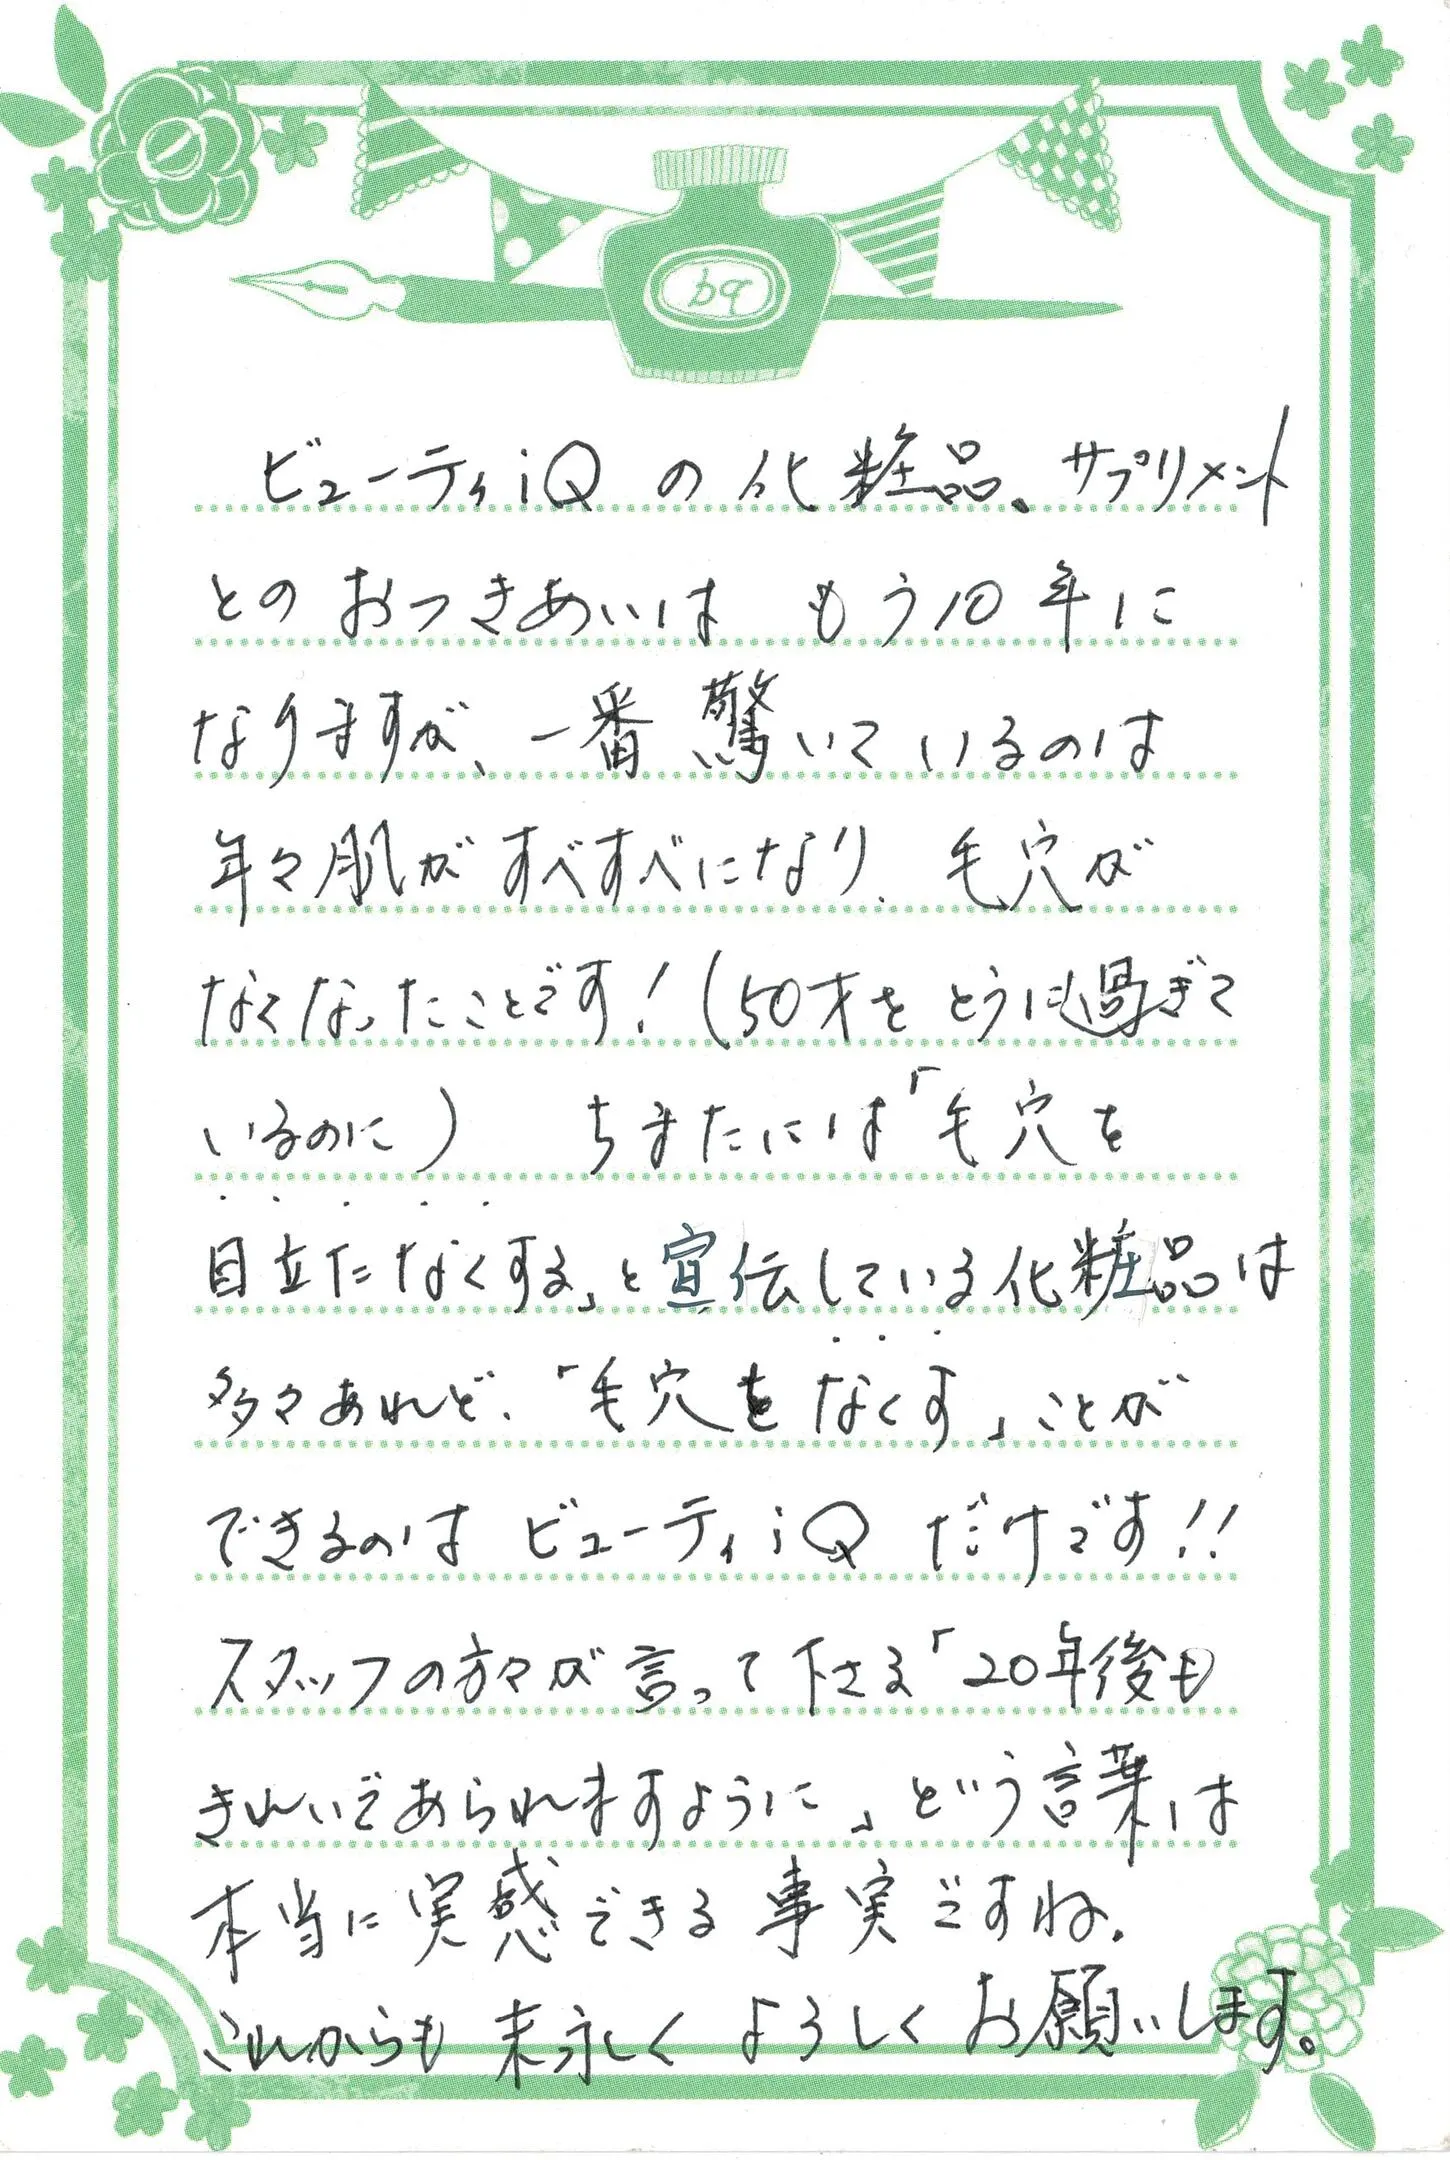 bq
ビューティiQの化粧品、サプリメント
とのおつきあいは もう10年に
なりますが、一番驚いているのは
年々肌がすべすべになり、毛穴が
なくなったことです!(50才をとうに過ぎて
いるのに) ちまたには「毛穴を
目立たなくする」と宣伝している化粧品は
多々あれど、「毛穴をなくす」ことが
できるのは ビューティiQ だけです!!
スタッフの方々が言って下さる「20年後も
きれいであられますように」という言葉は
本当に実感できる事実ですね。
これからも末永くよろしくお願いします。